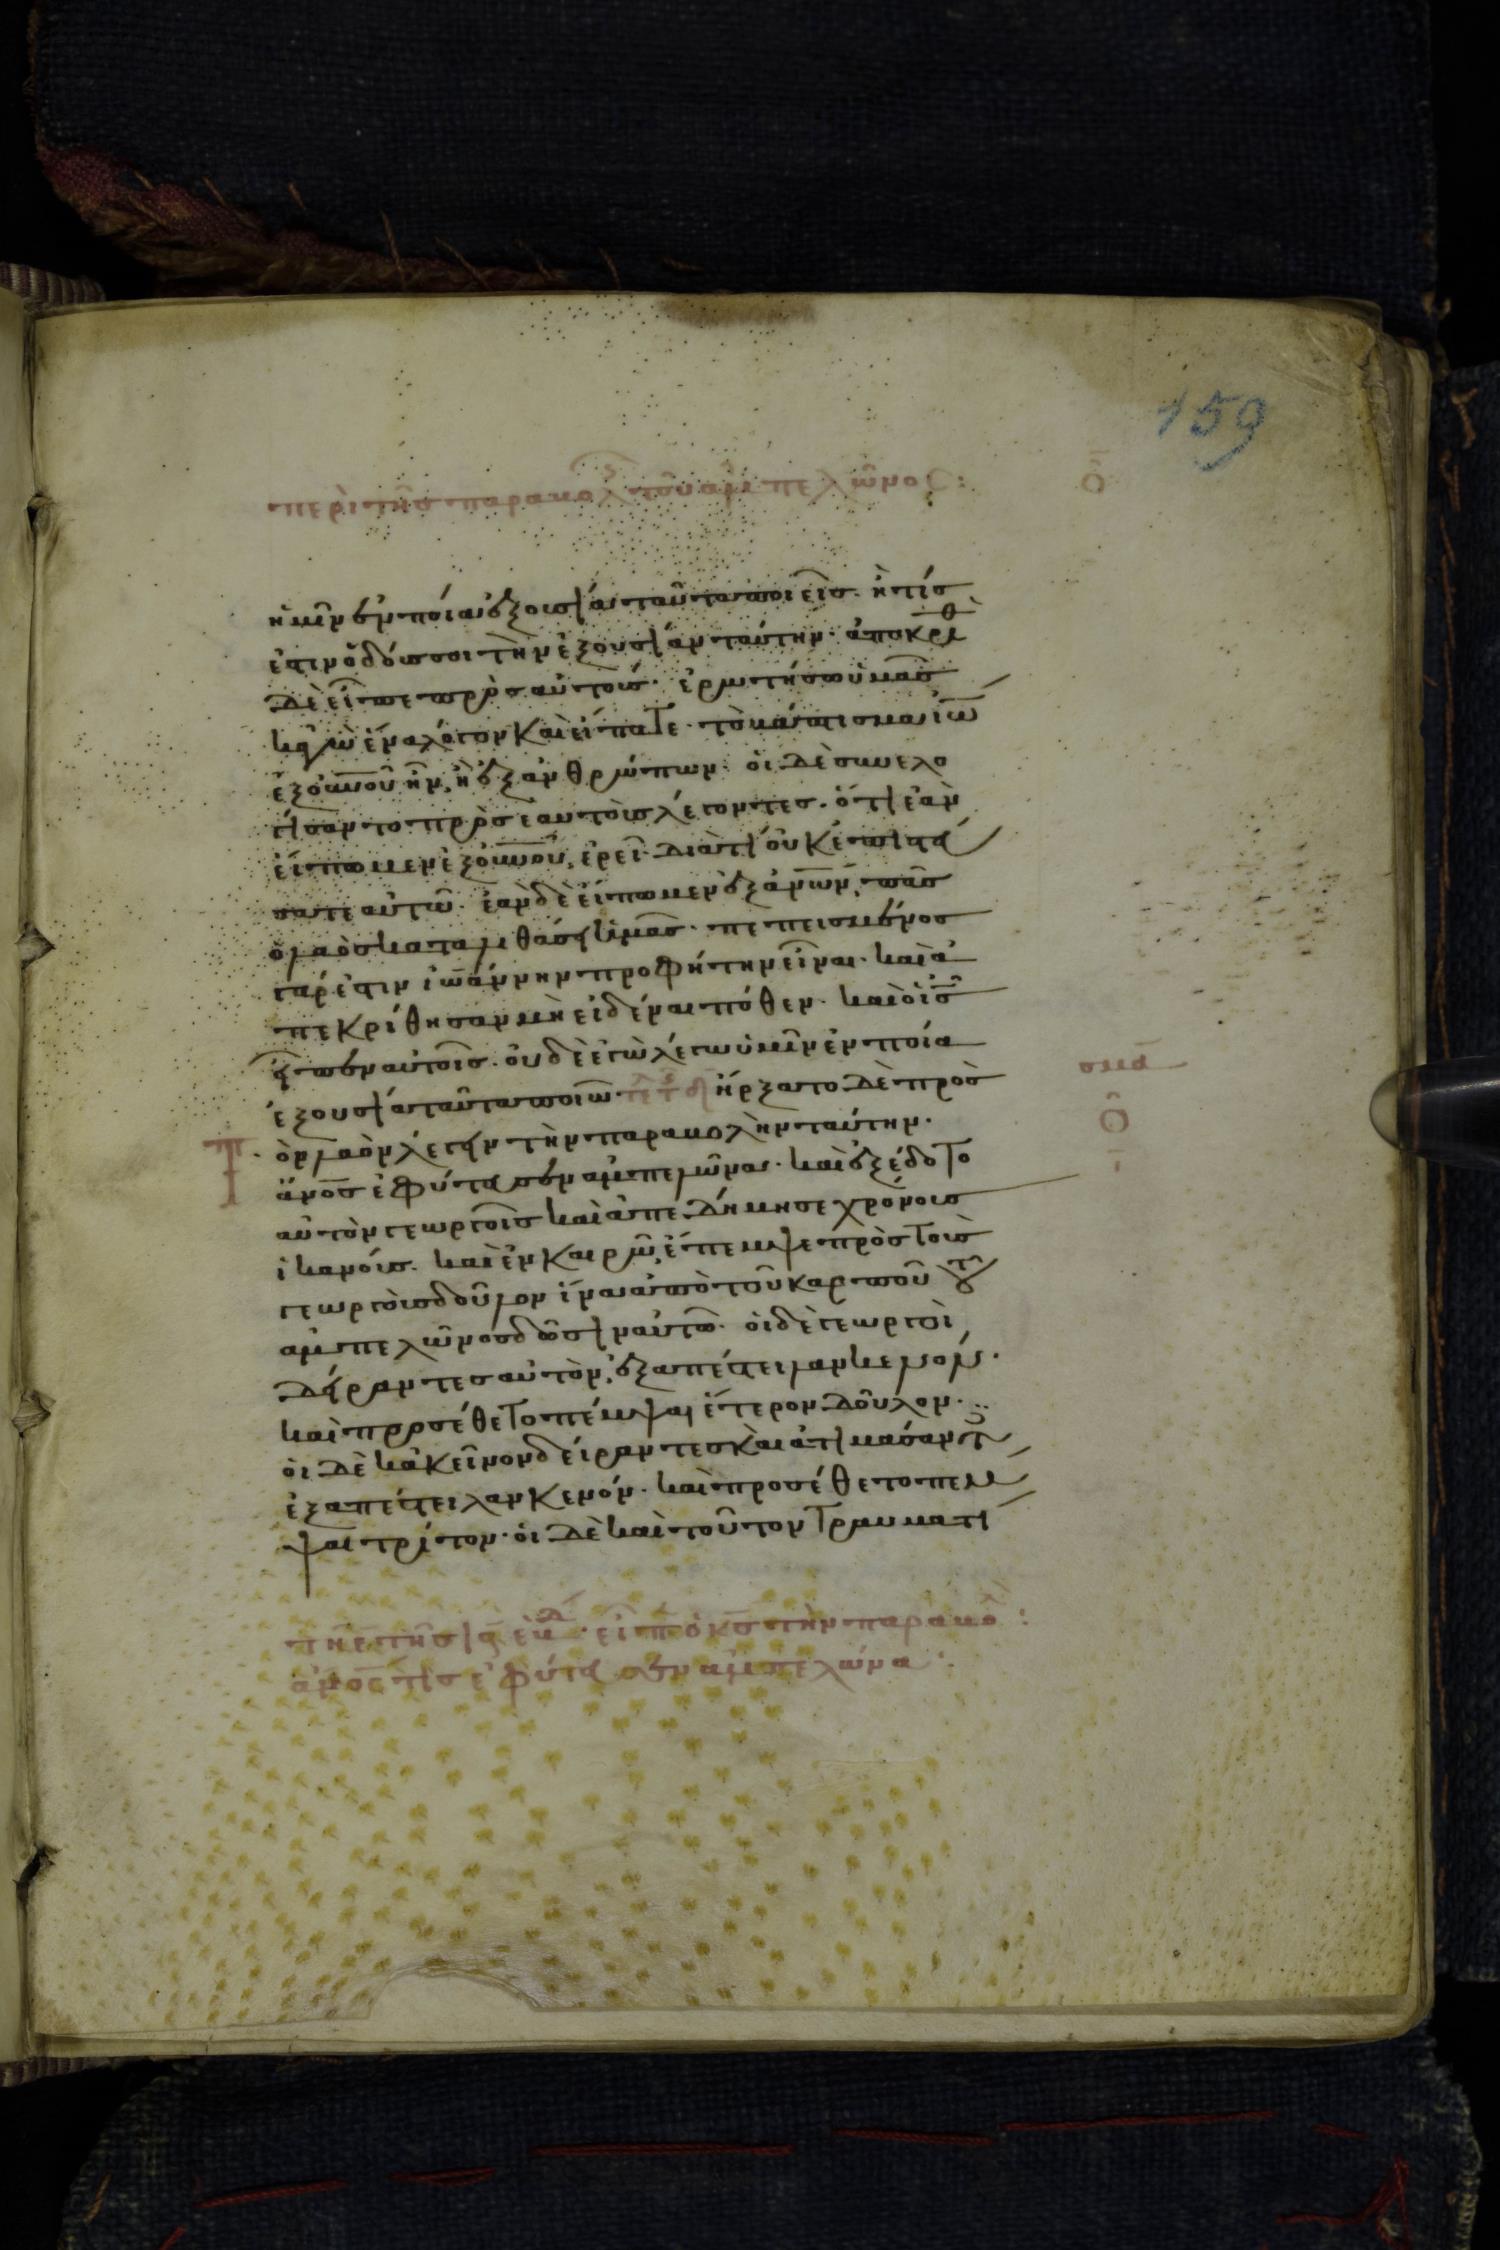 159
περὶ τῆς παραβολ τοῦ ἀμπελῶνος: ο
ἡμῖν ἐν ποία ἐξουσία ταῦτα ποιεῖς· ἢ τίς
ἐστιν ὁ δούς σοι τὴν ἐξουσίαν ταύτην· ἀποκριθ
δὲ εἶπε πρὸς αὐτούς· ἐρωτήσω ὑμᾶς
κἀγὼ ἕνα λόγον καὶ εἴπατε· τὸ βάπτισμα ἰῶ
ἐξ οὐνοῦ ἦν, ἢ ἐξ ἀνθρώπων· οἱ δὲ συνελο
γίσαντο πρὸς ἑαυτοὺς λέγοντες· ὅτι ἐὰν
εἴπωμεν ἐξ οὐνοῦ, ἐρεῖ· διατί οὐκ ἐπιστεύ
σατε αὐτῶ· ἐὰν δὲ εἴπωμεν ἐξ ἀνων, πᾶς
ὁ λαὸς καταλιθάσει ἡμᾶς· πεπεισμένος
γάρ ἐστιν ἰωάννην προφήτην εἶναι· καὶ ἀ
πεκρίθησαν μὴ εἰδέναι πόθεν· καὶ ὁ ις
εἶπεν αὐτοῖς· οὐδὲ ἐγὼ λέγω ὑμῖν ἐν ποία
ἐξουσία ταῦτα ποιῶ· ἤρξατο δὲ πρὸς
ὸν λαὸν λέγειν τὴν παραβολὴν ταύτην·
ἄνος ἐφύτευσεν ἀμπελῶνα· καὶ ἐξέδοτο
αὐτὸν γεωργοῖς καὶ ἀπεδήμησε χρόνους
ἱκανούς· καὶ ἐν καιρῶ, ἔπεμψε πρὸς τοὺς
γεωργοὺς δοῦλον ἵνα ἀπὸ τοῦ καρποῦ τοῦ
ἀμπελῶνος δῶσιν αὐτῶ· οἱ δὲ γεωργοὶ
δείραντες αὐτὸν, ἐξαπέστειλαν κενόν·
καὶ προσέθετο πέμψαι ἕτερον δοῦλον·
οἱ δὲ κἀκεῖνον δείραντες καὶ ἀτιμάσαντ
ἐξαπέστειλαν κενόν· καὶ προσέθετο πέμ
ψαι τρίτον· οἱ δὲ καὶ τοῦτον τραυματί
εἶπ ὁ κς τὴν παραβο:
ἄνος τις ἐφύτευσεν ἀμπελῶνα·